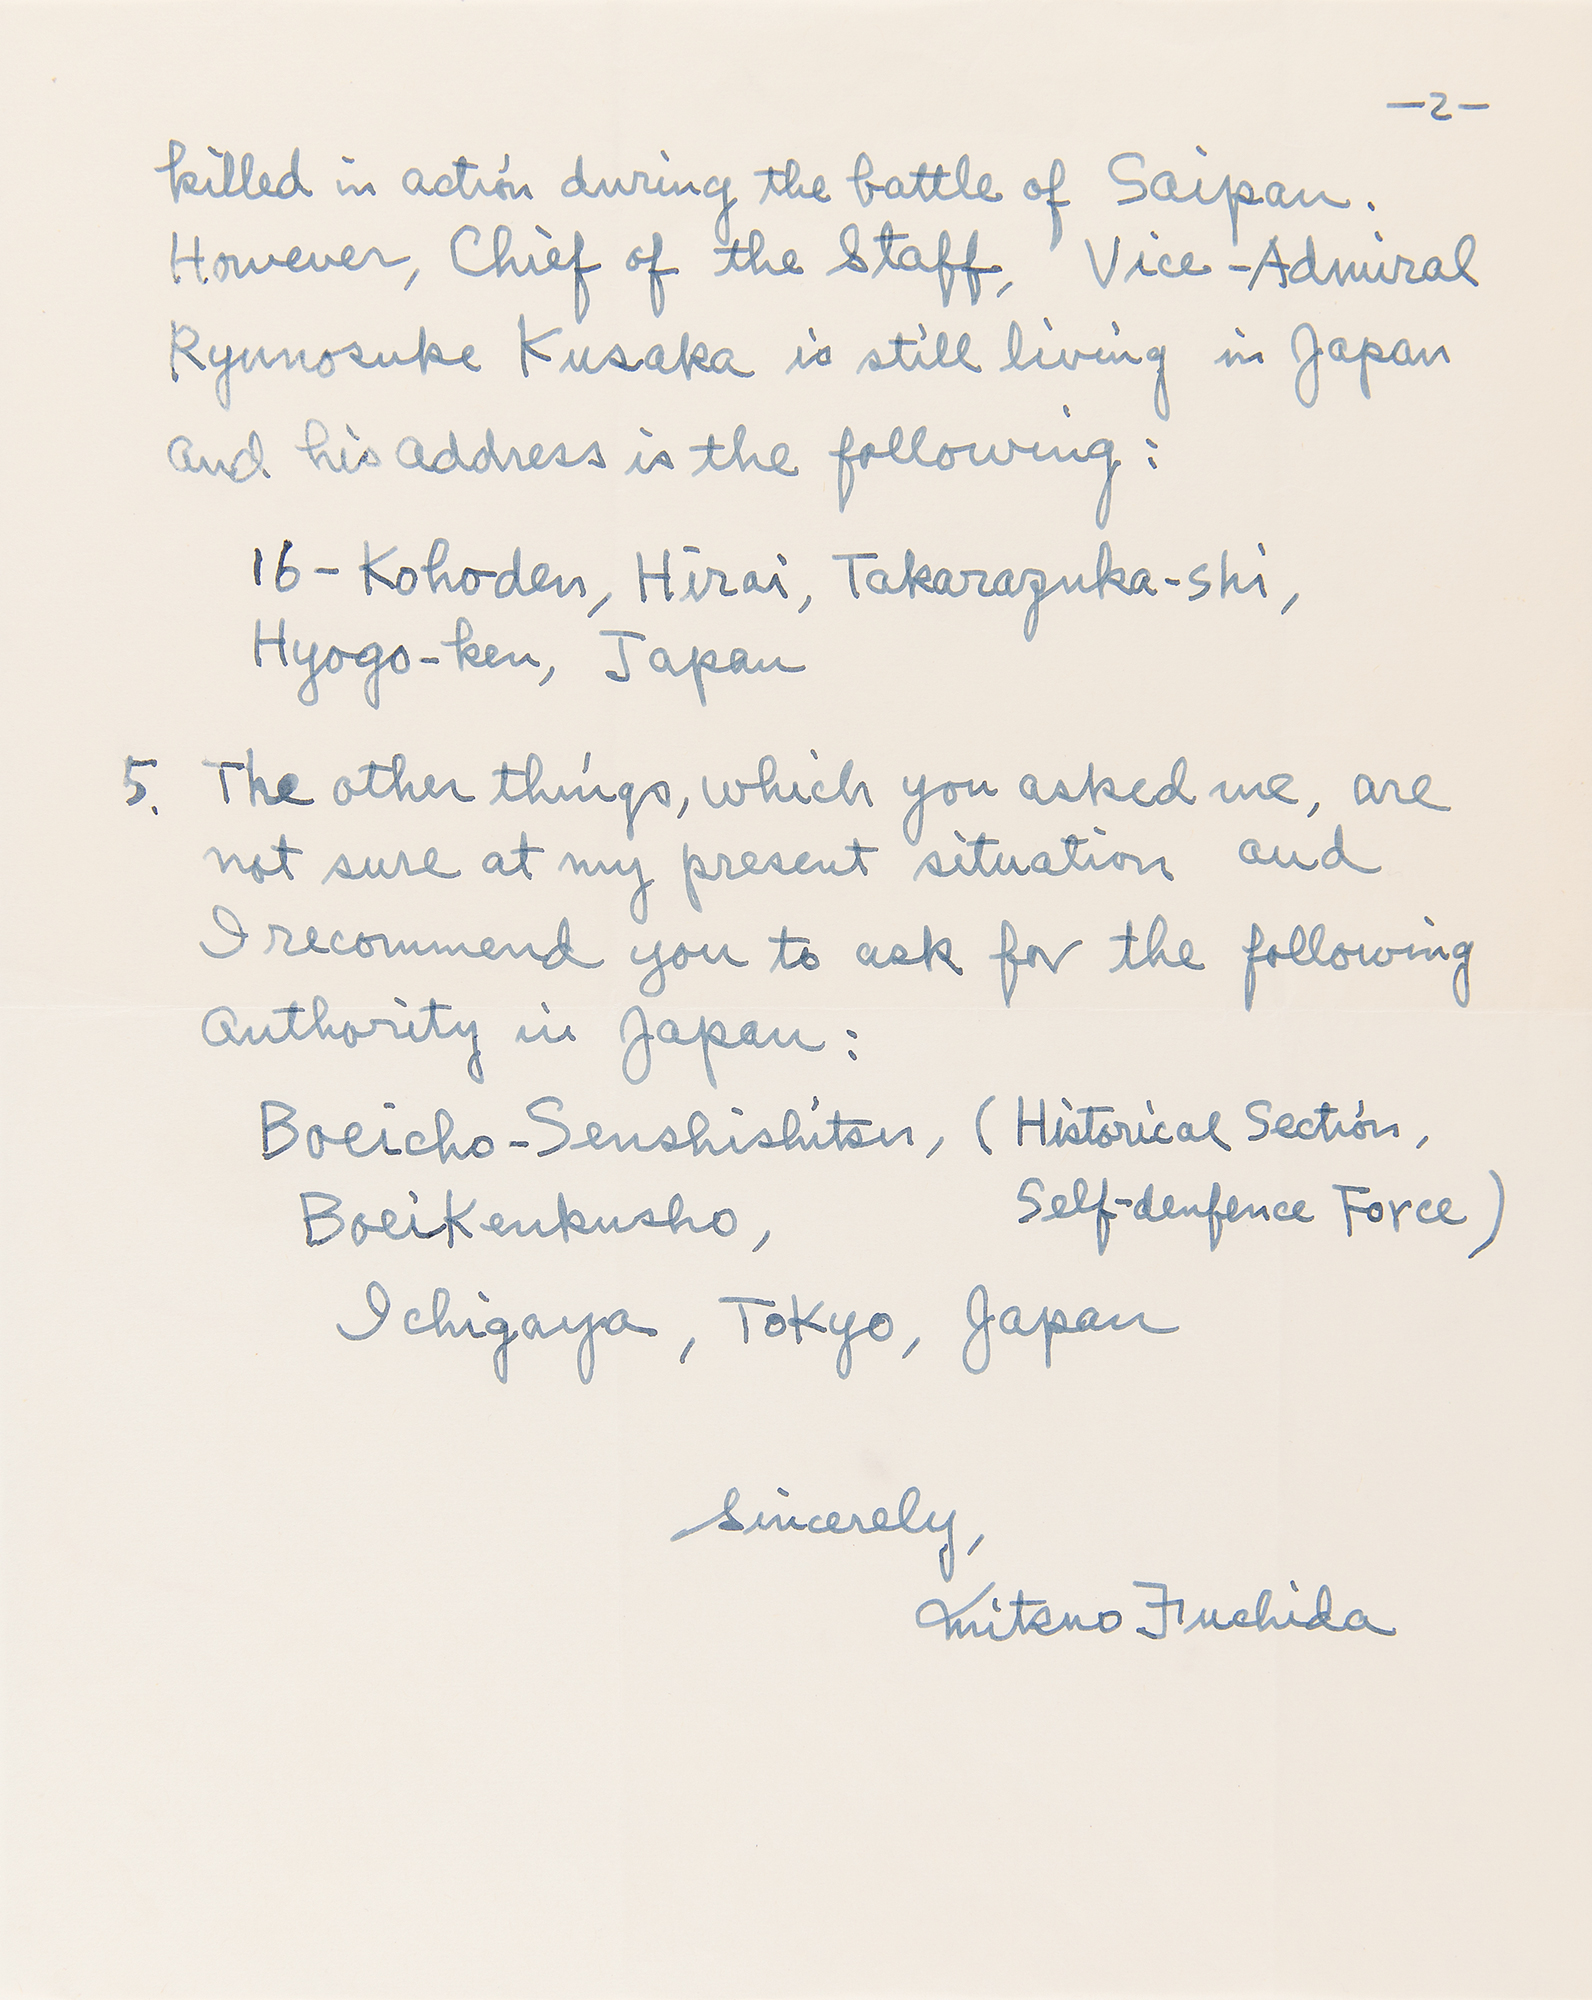 -2-
killed in action during the battle of Saipan.
However, Chief of the Staff, Vice-Admiral
Ryunosuke Kusaka is still living in Japan
and his address is the following:
16-Kohoden, Hirai, Takarazuka-shi,
Hyogo-ken, Japan
5. The other things, which you asked me, are
not sure at my present situation and
I recommend you to ask for the following
authority in Japan:
Boeicho-Senshishitsu, (Historical Section,
BoeiKenkusho, Self-denfence Force)
Ichigaya, Tokyo, Japan
Sincerely,
Mitsuo Fuchida